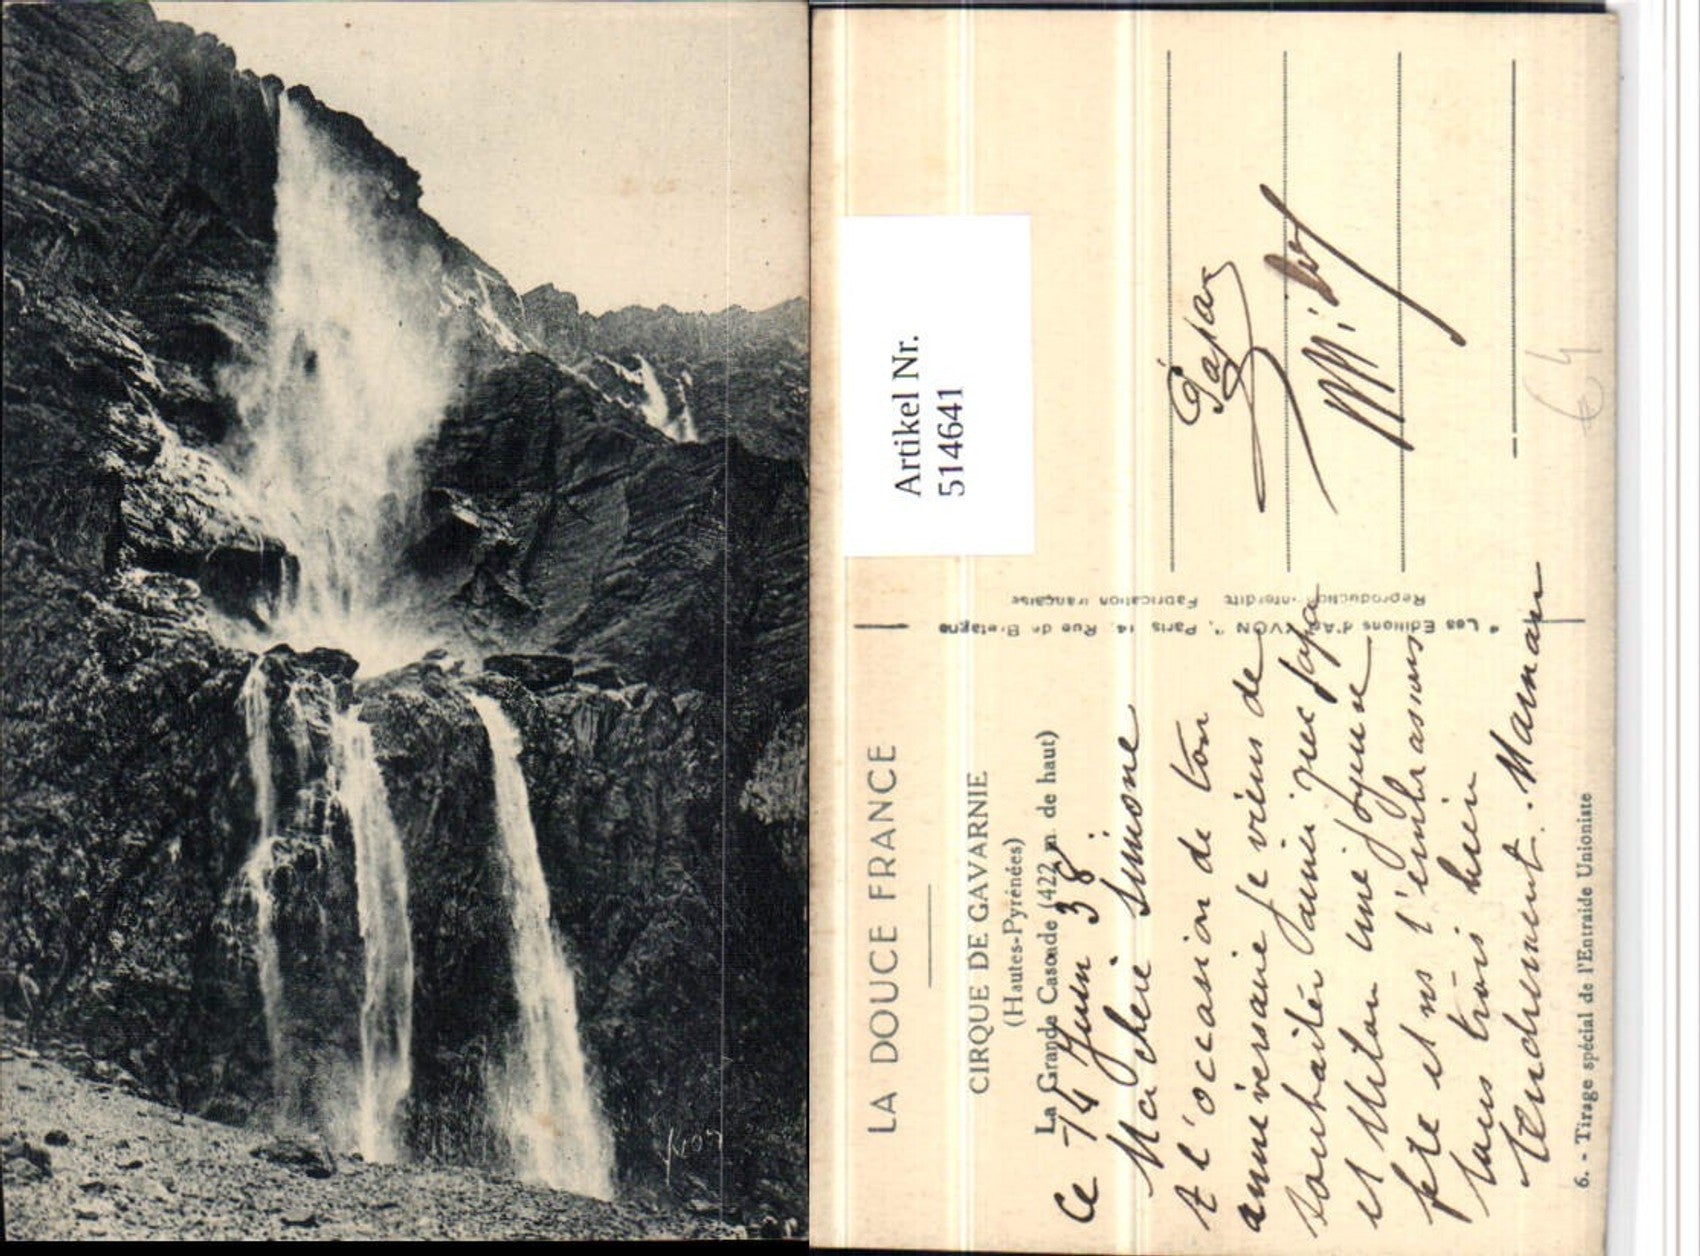 LA DOUCE FRANCE
CIRQUE DE GAVARNIE
(Hautes-Pyrénées)
La Grande Cascade (422 m. de haut)
Ce 14 Juin 38
Ma chérie Simone
A l'occasion de ton
anniversaire je viens de
souhaiter Jamie avec papa
et une joyeuse
fête et nous l'embrassons
tous trois bien
tendrement. Maman
6. - Tirage spécial de l'Entraide Unioniste
"Les Editions d'Art YVON", Paris 14, Rue de Bretagne
Reproduction interdite Fabrication française
Artikel Nr.
514641
Papa
64
Yvon